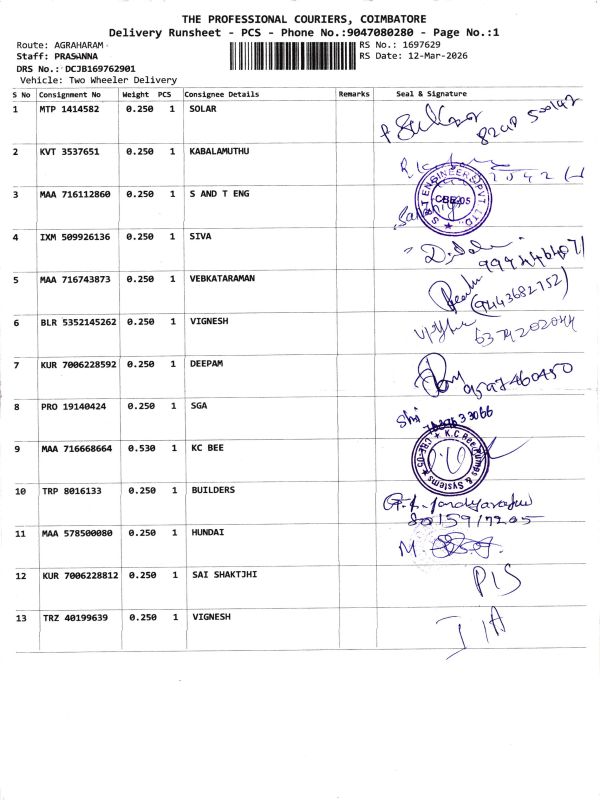 THE PROFESSIONAL COURIERS, COIMBATORE
Delivery Runsheet - PCS - Phone No.:9047080280 - Page No.:1
Route: AGRAHARAM
RS No.: 1697629
Staff: PRASANNA
RS Date: 12-Mar-2026
DRS No.: DCJB169762901
Vehicle: Two Wheeler Delivery
S No Consignment No Weight PCS Consignee Details Remarks Seal & Signature
1 MTP 1414582 0.250 1 SOLAR
2 KVT 3537651 0.250 1 KABALAMUTHU
3 MAA 716112860 0.250 1 S AND T ENG
S & T ENGINEERS PVT. LTD. CBE-05
4 IXM 509926136 0.250 1 SIVA
5 MAA 716743873 0.250 1 VEBKATARAMAN
(9443682752)
6 BLR 5352145262 0.250 1 VIGNESH
6374202044
7 KUR 7006228592 0.250 1 DEEPAM
9597460450
8 PRO 19140424 0.250 1 SGA
9 MAA 716668664 0.530 1 KC BEE
K.C.Bee Pumps & Systems CBE-05
10 TRP 8016133 0.250 1 BUILDERS
8015917205
11 MAA 578500080 0.250 1 HUNDAI
12 KUR 7006228812 0.250 1 SAI SHAKTJHI
13 TRZ 40199639 0.250 1 VIGNESH